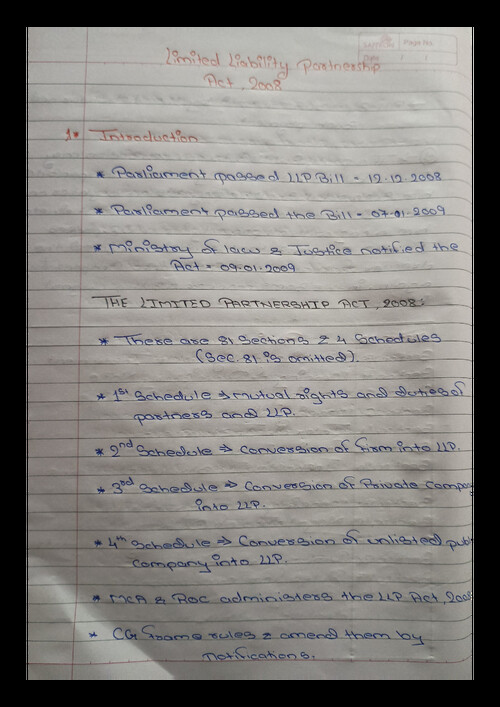 Page No.
Date
Limited Liability Partnership
Act, 2008
1. Introduction
* Parliament passed LLP Bill - 12.12.2008
* Parliament passed the Bill - 07.01.2009
* Ministry of law & Justice notified the
Act - 09.01.2009
THE LIMITED PARTNERSHIP ACT, 2008:
* There are 81 Sections & 4 Schedules
(Sec. 81 is omitted).
* 1st Schedule → mutual rights and duties of
partners and LLP.
* 2nd Schedule ⇒ Conversion of firm into LLP.
* 3rd Schedule ⇒ Conversion of Private Company
into LLP.
* 4th Schedule ⇒ Conversion of unlisted publ
company into LLP.
* MCA & ROC administers the LLP Act, 2008
* CG frame rules & amend them by
notifications.